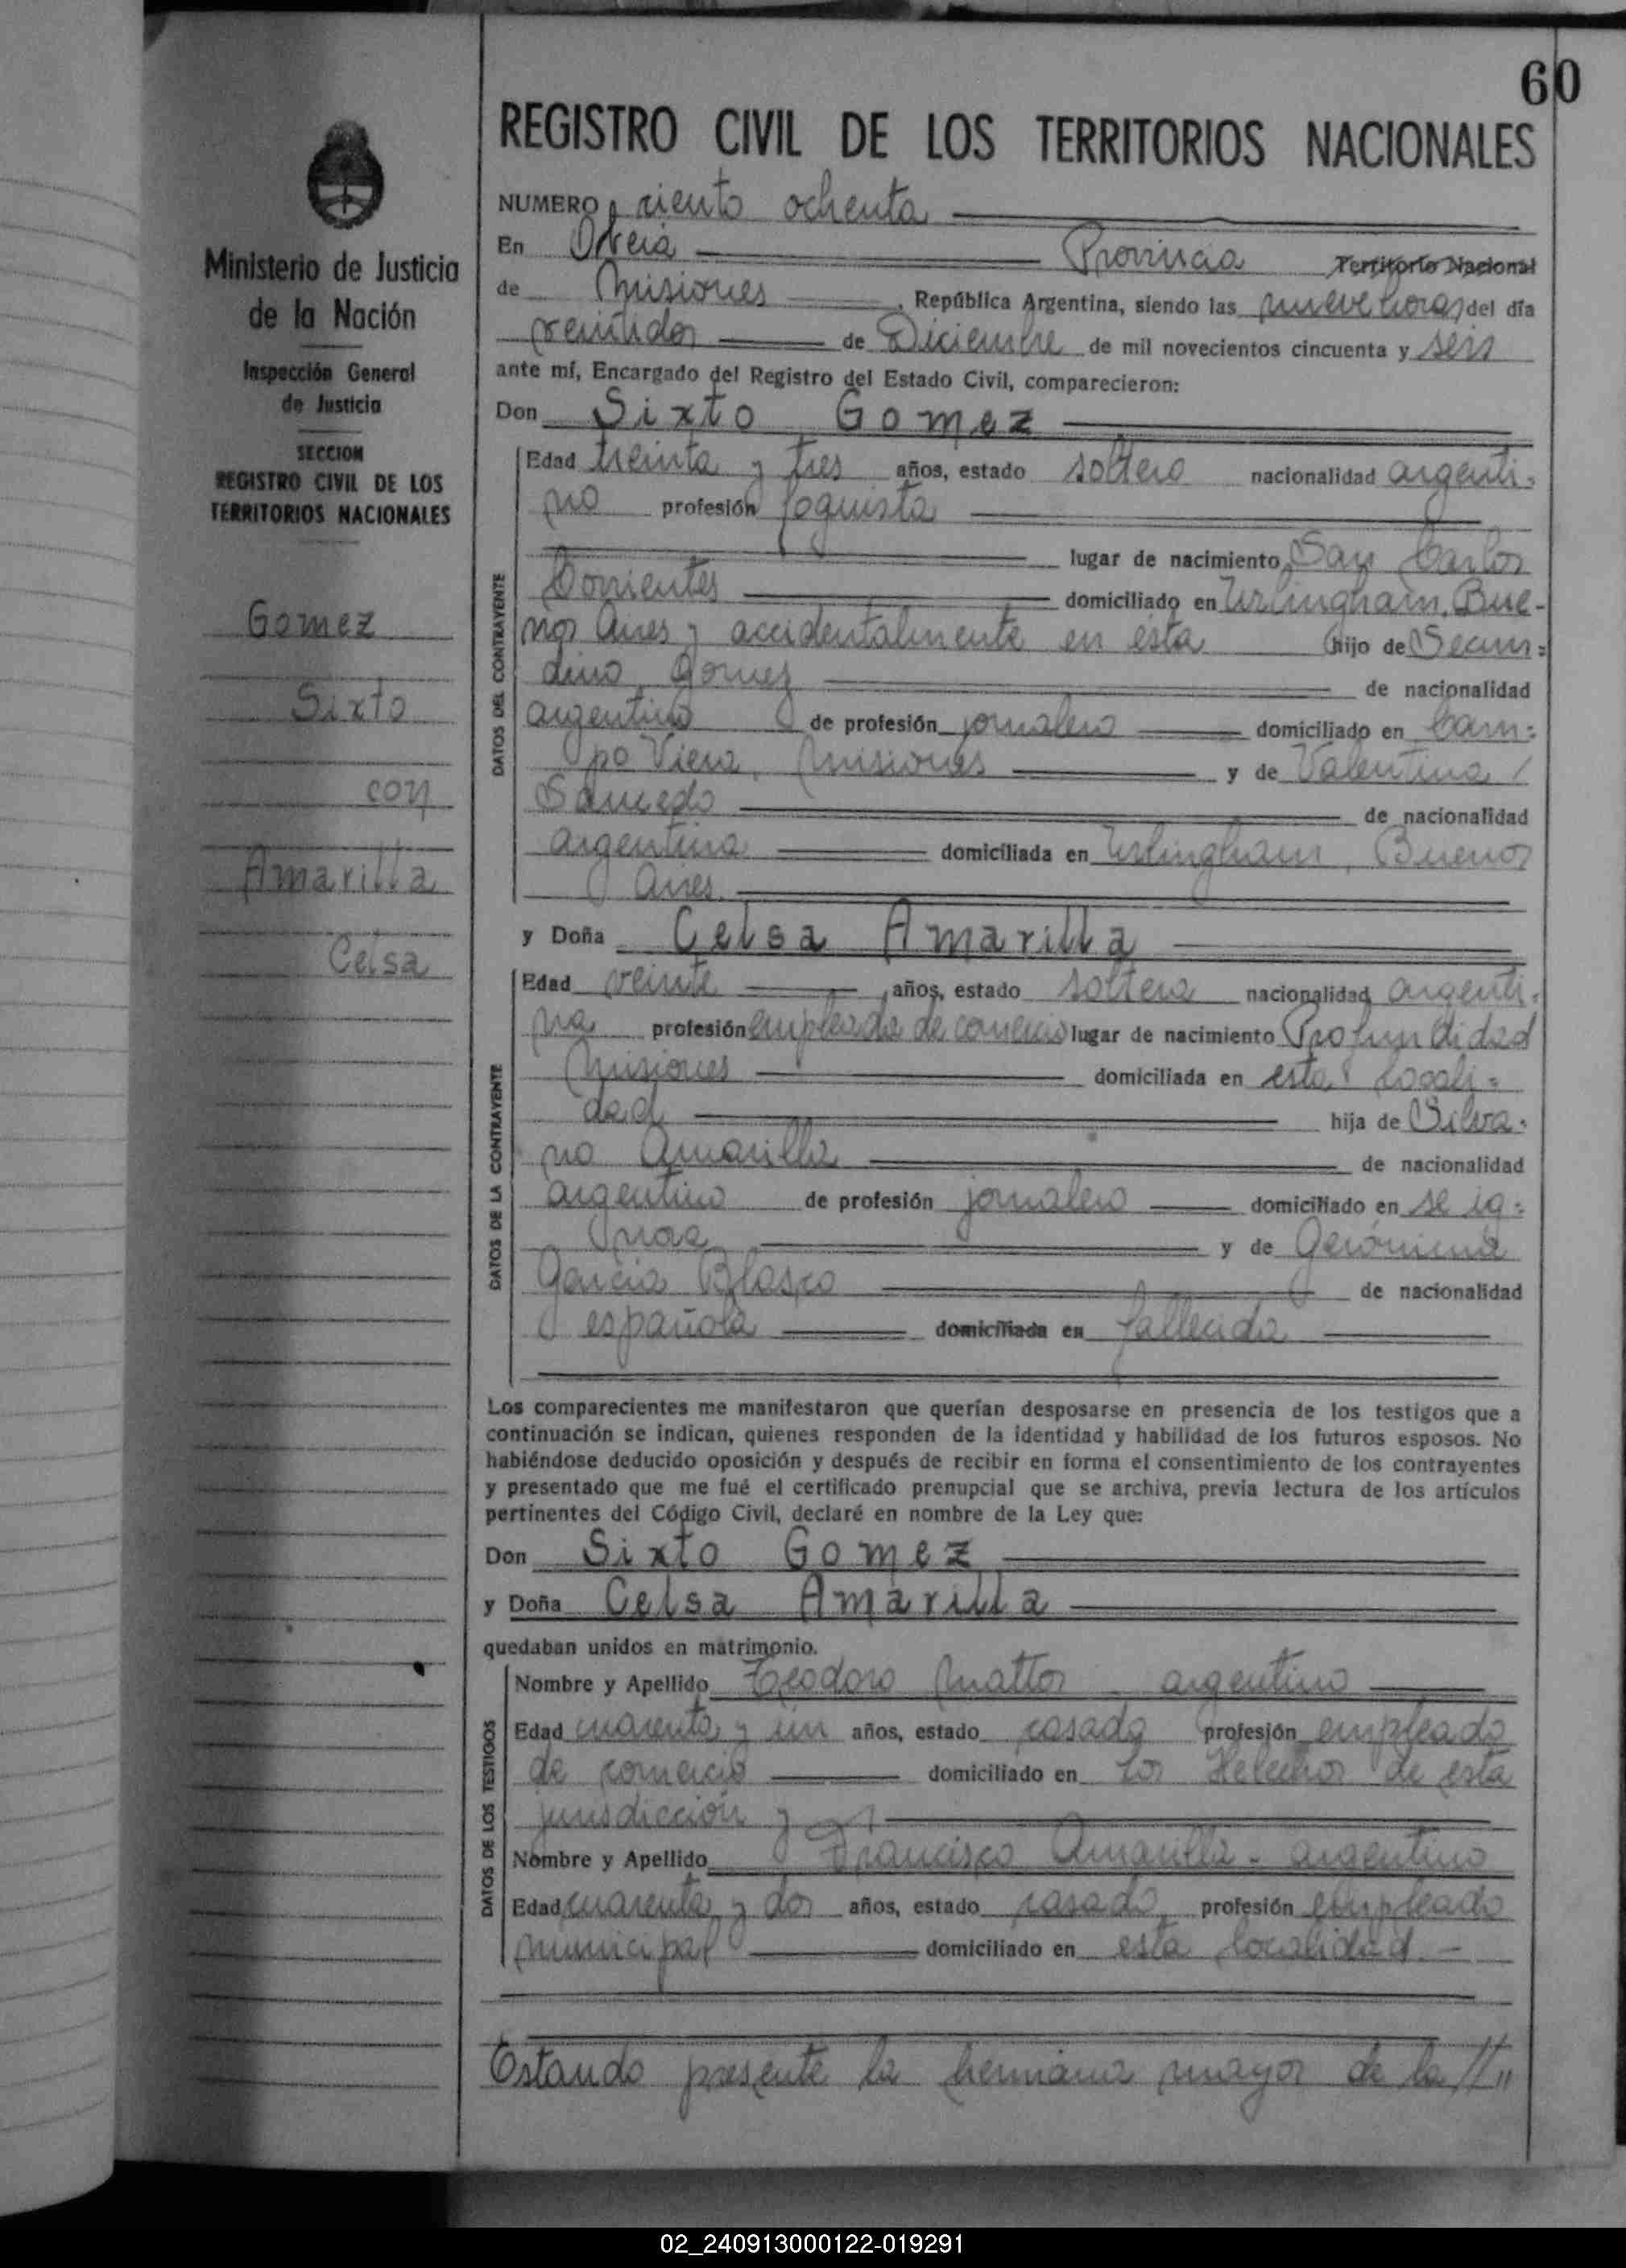 60
REGISTRO CIVIL DE LOS TERRITORIOS NACIONALES
Ministerio de Justicia
de la Nación
Inspección General
de Justicia
SECCION
REGISTRO CIVIL DE LOS
TERRITORIOS NACIONALES
Gomez
Sixto
con
Amarilla
Celsa
NUMERO ciento ochenta
En Provincia Territorio Nacional
de Misiones, República Argentina, siendo las nueve horas del día
veintidos de Diciembre de mil novecientos cincuenta y seis
ante mí, Encargado del Registro del Estado Civil, comparecieron:
Don Sixto Gomez
DATOS DEL CONTRAYENTE
Edad treinta y tres años, estado soltero nacionalidad argenti-
no profesión foguista
lugar de nacimiento San Carlos
Corrientes domiciliado en Urlingham, Bue-
nos Aires y accidentalmente en esta hijo de Secun-
dino Gomez de nacionalidad
argentino de profesión jornalero domiciliado en Cam-
po Viera, Misiones y de Valentina
Saucedo de nacionalidad
argentina domiciliada en Urlingham, Buenos
Aires.
y Doña Celsa Amarilla
DATOS DE LA CONTRAYENTE
Edad veinte años, estado soltera nacionalidad argenti-
na profesión empleada de comercio lugar de nacimiento Profundidad
Misiones domiciliada en esta locali-
dad hija de Silva-
no Amarilla de nacionalidad
argentino de profesión jornalero domiciliado en se ig-
nora y de Gerónima
Garcia Blasco de nacionalidad
española domiciliada en fallecida
Los comparecientes me manifestaron que querían desposarse en presencia de los testigos que a
continuación se indican, quienes responden de la identidad y habilidad de los futuros esposos. No
habiéndose deducido oposición y después de recibir en forma el consentimiento de los contrayentes
y presentado que me fué el certificado prenupcial que se archiva, previa lectura de los artículos
pertinentes del Código Civil, declaré en nombre de la Ley que:
Don Sixto Gomez
y Doña Celsa Amarilla
quedaban unidos en matrimonio.
DATOS DE LOS TESTIGOS
Nombre y Apellido Teodoro Mattos argentino
Edad cuarenta y un años, estado casado profesión empleado
de comercio domiciliado en Los Helechos de esta
jurisdicción y
Nombre y Apellido Francisco Amarilla - argentino
Edad cuarenta y dos años, estado casado profesión empleado
municipal domiciliado en esta localidad.-
Estando presente la hermana mayor de la //"
02_240913000122-019291